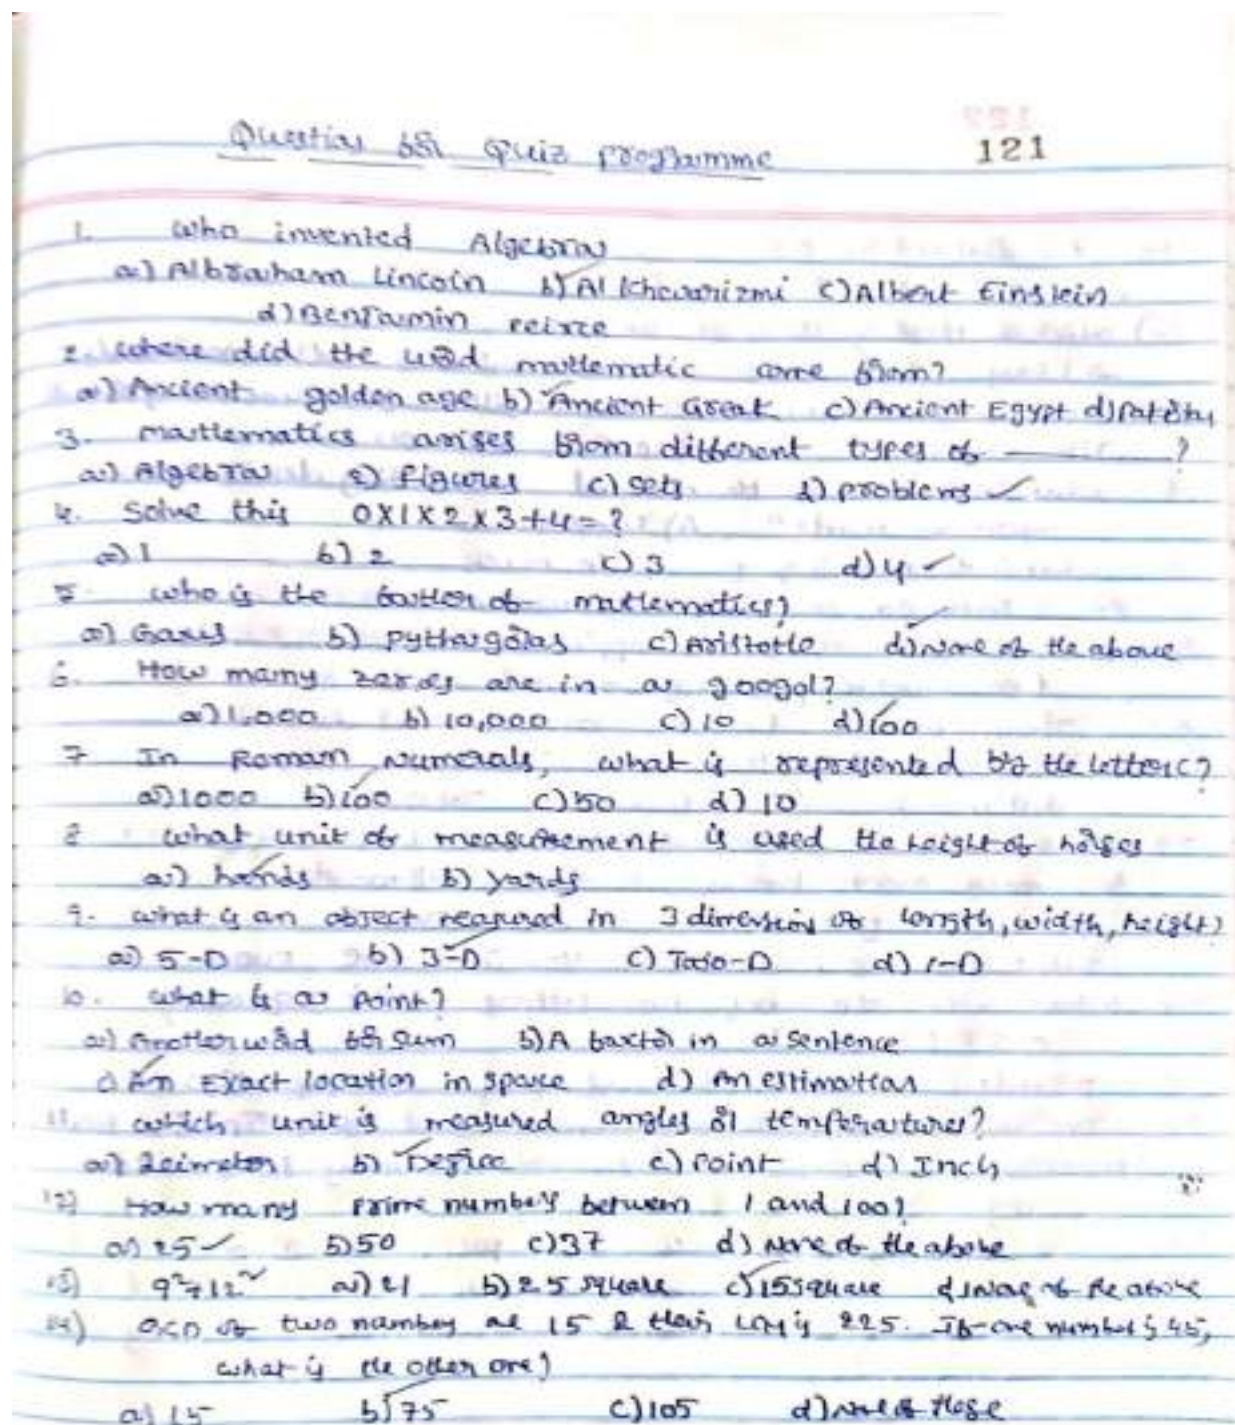 Question for Quiz programme
121
1. who invented Algebra
a) Albraham Lincoln b) Al Khawarizmi c) Albert Einstein
d) Benjamin Peirce
2. where did the word mathematic come from?
a) Ancient golden age b) Ancient Greak c) Ancient Egypt d)
3. mathematics arises from different types of ——— ?
a) Algebra b) Figures c) sets d) problems ✓
4. Solve this 0x1x2x3+4=?
a) 1 b) 2 c) 3 d) 4 ✓
5. who is the father of mathematics?
a) Gauss b) pythargoras c) Aristotle d) None of the above
6. How many zeroes are in a googol?
a) 1,000 b) 10,000 c) 10 d) 100
7 In Roman Numerals, what is represented by the letter c?
a) 1000 b) 100 c) 50 d) 10
8 what unit of measurement is used the height of horses
a) hands b) yards
9. what is an object measured in 3 dimension of length, width, height?
a) 5-D b) 3-D c) Two-D d) 1-D
10. what is a point?
a) Another word for sum b) A factor in a sentence
c) An Exact location in space d) An estimation
11. which unit is measured angles or temperatures?
a) b) Degree c) Point d) Inch
12) How many prime numbers between 1 and 100?
a) 25 ✓ b) 50 c) 37 d) None of the above
13) 9²+12² a) 21 b) 25 square c) 15 square d) None of the above
14) GCD of two number are 15 & their LCM is 225. If one number is 45,
what is the other one?
a) 15 b) 75 c) 105 d) None of these